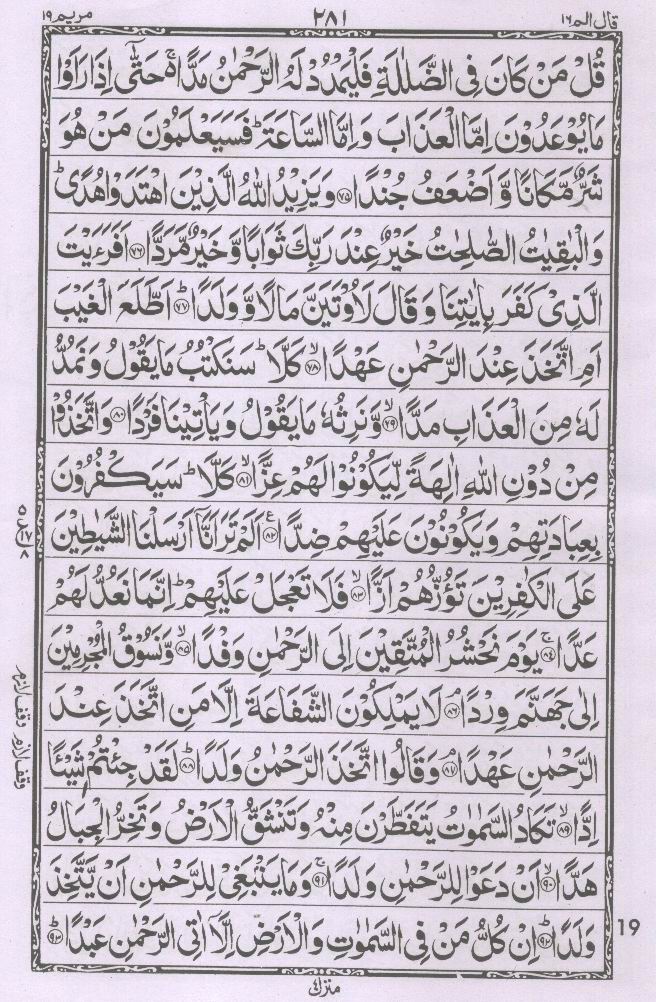 قال الم ١٦
٢٨١
مريم ١٩
قُلْ مَنْ كَانَ فِى الضَّلٰلَةِ فَلْيَمْدُدْ لَهُ الرَّحْمٰنُ مَدًّا ەۚ حَتّٰٓى اِذَا رَاَوْا
مَا يُوْعَدُوْنَ اِمَّا الْعَذَابَ وَاِمَّا السَّاعَةَ ؕ فَسَيَعْلَمُوْنَ مَنْ هُوَ
شَرٌّ مَّكَانًا وَّاَضْعَفُ جُنْدًا ﴿٧٥﴾ وَيَزِيْدُ اللّٰهُ الَّذِيْنَ اهْتَدَوْا هُدًى ؕ
وَالْبٰقِيٰتُ الصّٰلِحٰتُ خَيْرٌ عِنْدَ رَبِّكَ ثَوَابًا وَّخَيْرٌ مَّرَدًّا ﴿٧٦﴾ اَفَرَءَيْتَ
الَّذِىْ كَفَرَ بِاٰيٰتِنَا وَقَالَ لَاُوْتَيَنَّ مَالًا وَّوَلَدًا ؕ ﴿٧٧﴾ اَطَّلَعَ الْغَيْبَ
اَمِ اتَّخَذَ عِنْدَ الرَّحْمٰنِ عَهْدًا ۙ ﴿٧٨﴾ كَلَّا ؕ سَنَكْتُبُ مَا يَقُوْلُ وَنَمُدُّ
لَهٗ مِنَ الْعَذَابِ مَدًّا ۙ ﴿٧٩﴾ وَّنَرِثُهٗ مَا يَقُوْلُ وَيَاْتِيْنَا فَرْدًا ﴿٨٠﴾ وَاتَّخَذُوْا
مِنْ دُوْنِ اللّٰهِ اٰلِهَةً لِّيَكُوْنُوْا لَهُمْ عِزًّا ۙ ﴿٨١﴾ كَلَّا ؕ سَيَكْفُرُوْنَ
بِعِبَادَتِهِمْ وَيَكُوْنُوْنَ عَلَيْهِمْ ضِدًّا ﴿٨٢﴾ ع اَلَمْ تَرَ اَنَّآ اَرْسَلْنَا الشَّيٰطِيْنَ
عَلَى الْكٰفِرِيْنَ تَؤُزُّهُمْ اَزًّا ۙ ﴿٨٣﴾ فَلَا تَعْجَلْ عَلَيْهِمْ ؕ اِنَّمَا نَعُدُّ لَهُمْ
عَدًّا ۚ ﴿٨٤﴾ يَوْمَ نَحْشُرُ الْمُتَّقِيْنَ اِلَى الرَّحْمٰنِ وَفْدًا ۙ ﴿٨٥﴾ وَّنَسُوْقُ الْمُجْرِمِيْنَ
اِلٰى جَهَنَّمَ وِرْدًا ۘ ﴿٨٦﴾ لَا يَمْلِكُوْنَ الشَّفَاعَةَ اِلَّا مَنِ اتَّخَذَ عِنْدَ
الرَّحْمٰنِ عَهْدًا ۘ ﴿٨٧﴾ وَقَالُوا اتَّخَذَ الرَّحْمٰنُ وَلَدًا ؕ ﴿٨٨﴾ لَقَدْ جِئْتُمْ شَيْئًا
اِدًّا ۙ ﴿٨٩﴾ تَكَادُ السَّمٰوٰتُ يَتَفَطَّرْنَ مِنْهُ وَتَنْشَقُّ الْاَرْضُ وَتَخِرُّ الْجِبَالُ
هَدًّا ۙ ﴿٩٠﴾ اَنْ دَعَوْا لِلرَّحْمٰنِ وَلَدًا ۚ ﴿٩١﴾ وَمَا يَنْۢبَغِىْ لِلرَّحْمٰنِ اَنْ يَّتَّخِذَ
وَلَدًا ؕ ﴿٩٢﴾ اِنْ كُلُّ مَنْ فِى السَّمٰوٰتِ وَالْاَرْضِ اِلَّآ اٰتِى الرَّحْمٰنِ عَبْدًا ؕ ﴿٩٣﴾
٥
ع ١٧
٨
وقف لازم
وقف لازم
19
منزل ٤